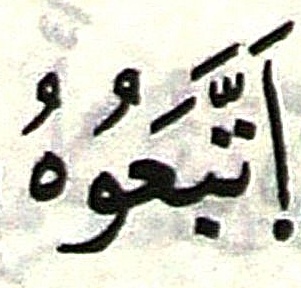 اَتَّبَعُوهُ